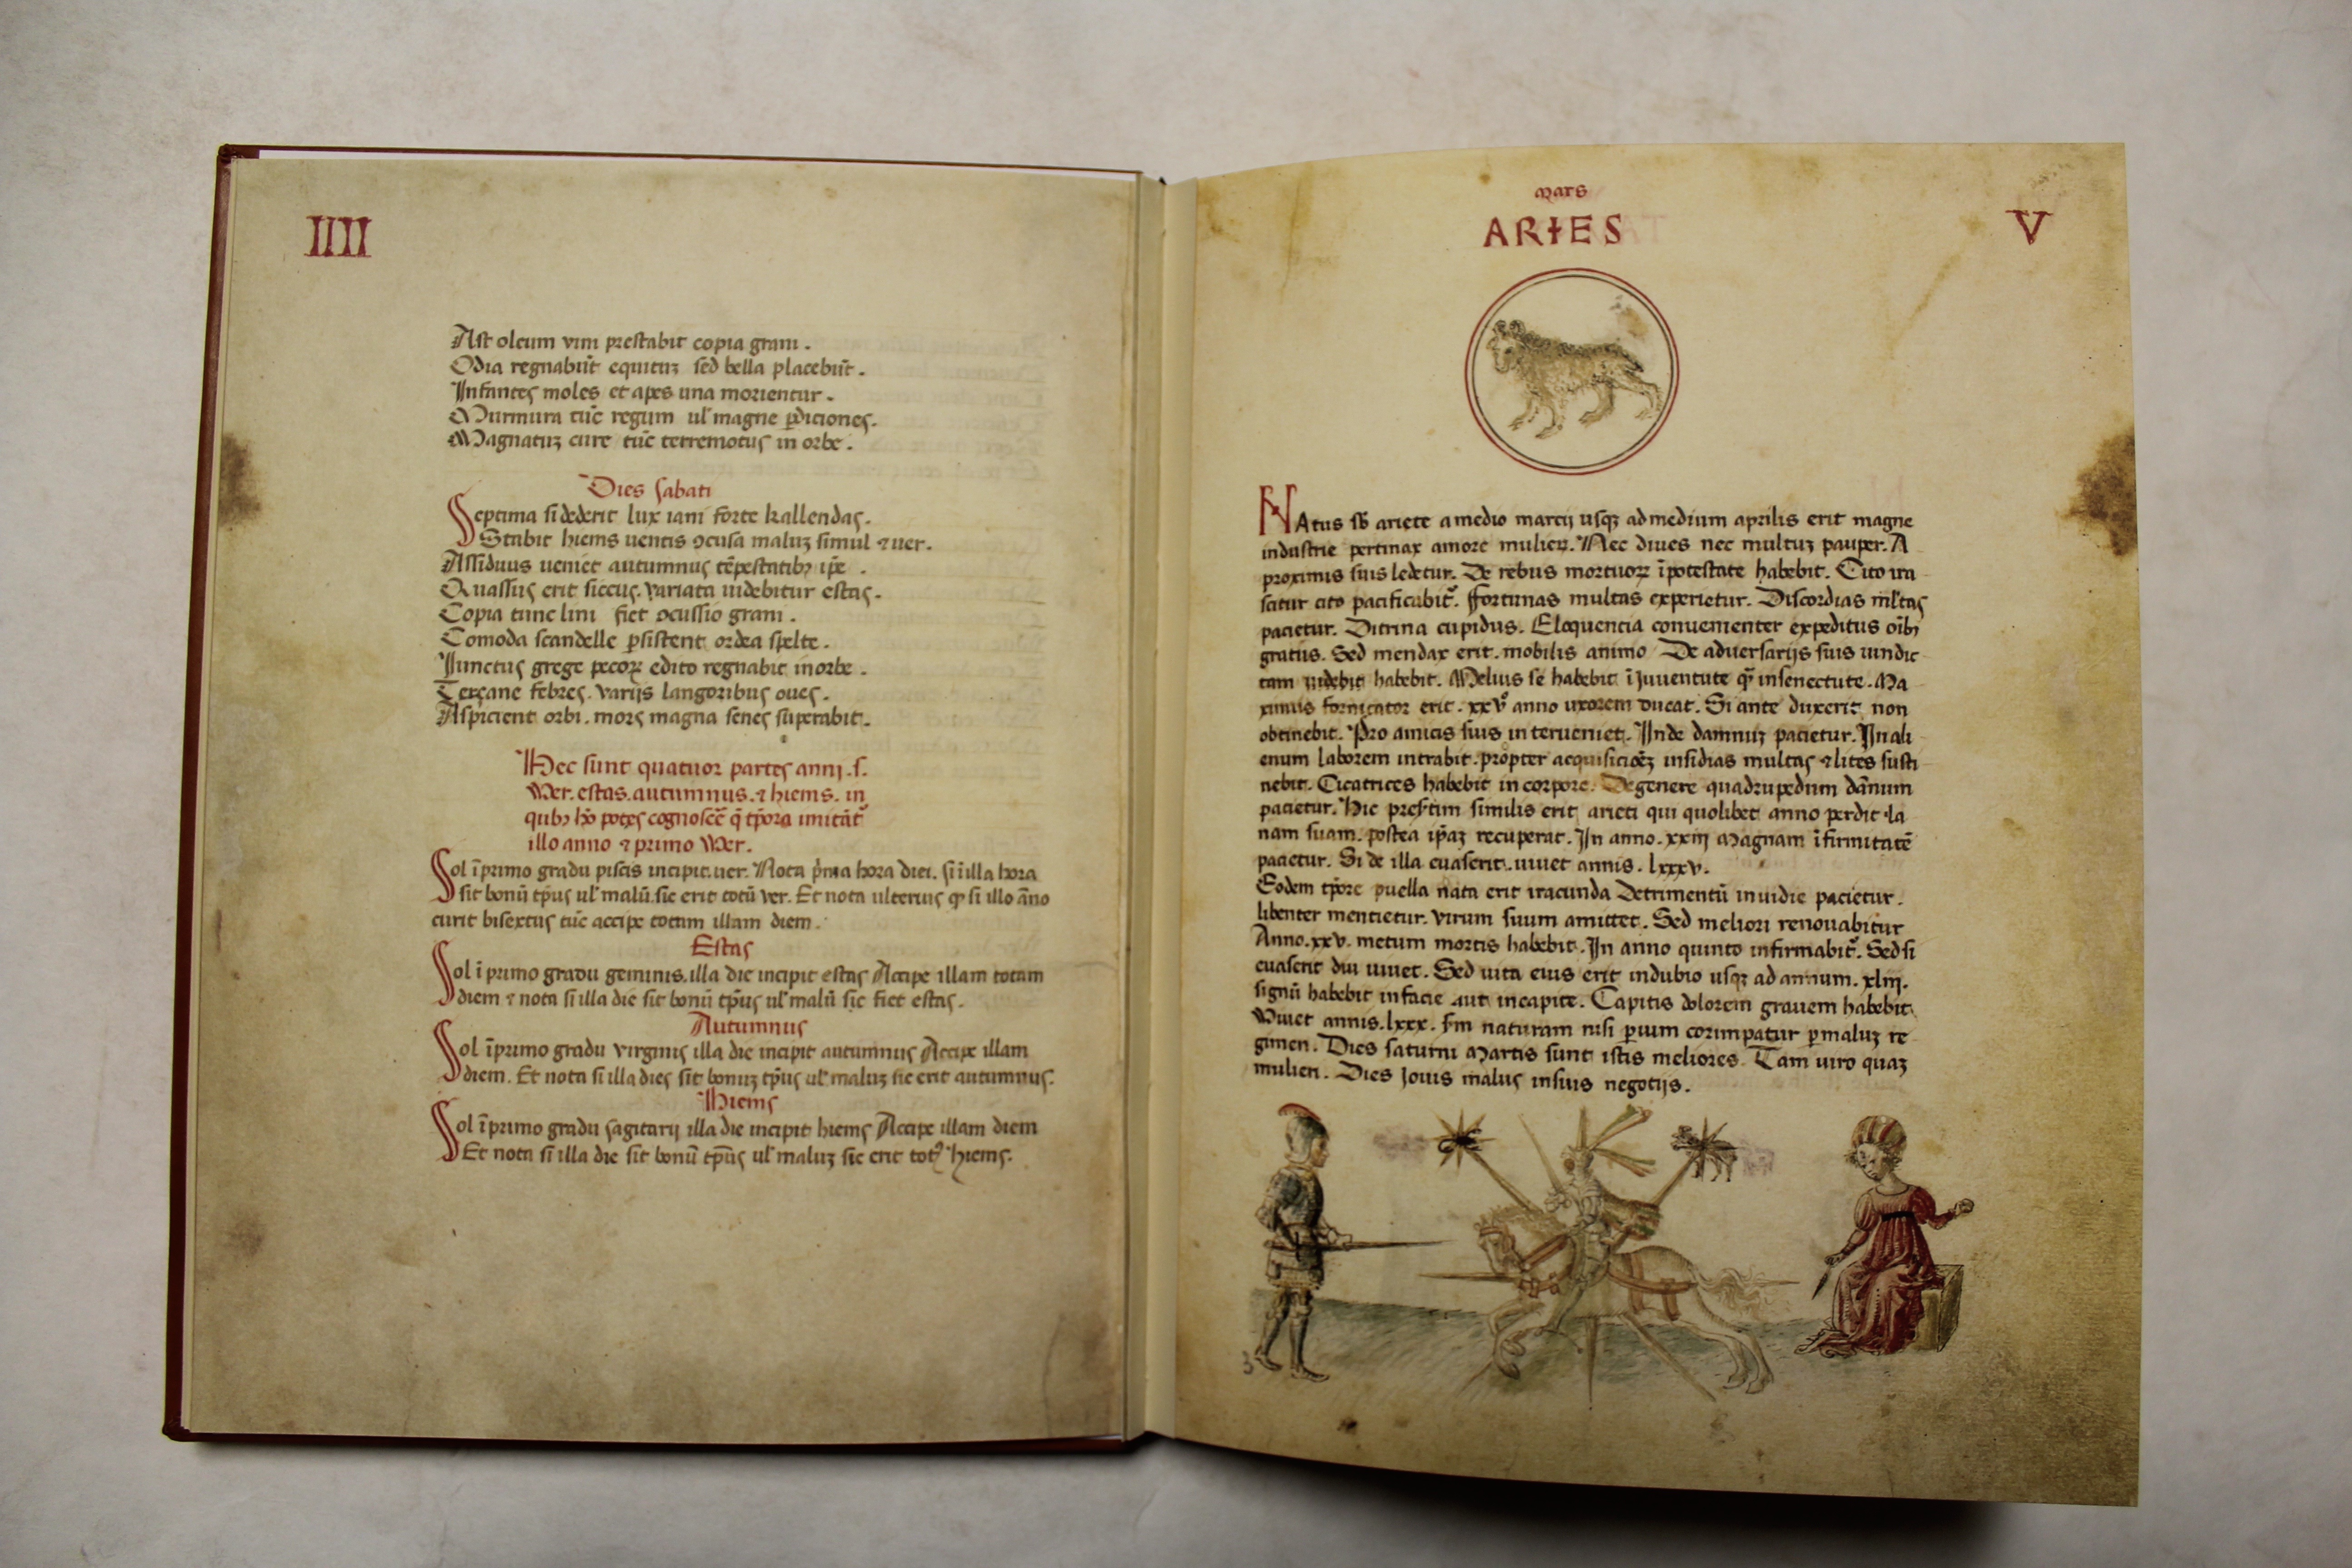 IIII
Ast oleum vini prestabit copia grani .
Odia regnabūt equituꝫ sed bella placebūt .
Infantes moles et apes una morientur .
Murmura tūc regum ul' magne ꝑdiciones .
Magnatuꝫ cure tūc terremotus in orbe .
Dies sabati
Septima si dederit lux iani forte kallendas .
Stabit hiems uentis ocusa maluꝫ simul ⁊ uer .
Assiduus ueniet autumnus tēpestatibꝫ ip̄e .
Quassus erit siccus . variata uidebitur estas .
Copia tunc lini fiet ocussio grani .
Comoda scandelle ꝑsistent ordea spelte .
Iunctus grege pecoꝝ edito regnabit in orbe .
Terçane febres . varijs langoribus oues .
Aspicient orbi . mors magna senes superabit .
Hec sunt quatuor partes anni . s .
Ver . estas . autumnus . ⁊ hiems . in
quibꝫ potes cognoscē q̄ tp̄ora
illo anno ⁊ primo Ver .
Sol ī primo gradu piscis incipit . uer . Nota p̄ma hora diei . si ī illa hora
sit bonū tp̄us ul' malū . sic erit totū ver . Et nota ulterius si illo āno
curit bisextus tūc accipe totam illam diem .
Estas
Sol ī primo gradu geminis . illa die incipit estas Accipe illam totam
diem ⁊ nota si illa die sit bonū tp̄us ul' malū sic fiet estas .
Autumnus
Sol ī primo gradu virginis illa die incipit autumnus Accipe illam
diem . Et nota si illa dies sit bonuꝫ tp̄us ul' maluꝫ sic erit autumnus .
Hiems
Sol ī primo gradu sagitarij illa die incipit hiems Accipe illam diem
Et nota si illa die sit bonū tp̄us ul' maluꝫ sic erit hiems .
Mars
ARIES
V
NAtus sb̄ ariete a medio marcij usqꝫ ad medium aprilis erit magne
industrie pertinax amore mulieꝝ . Nec diues nec multuꝫ pauper . A
proximis suis ledetur . De rebus mortuoꝝ ī potestate habebit . Cito ira
scitur cito pacificabit᷑ . Fortunas multas experietur . Discordias ml'tas
pacietur . Ditrina cupidus . Eloquencia conuenienter expeditus oībꝫ
gratus . Sed mendax erit . mobilis animo De adversarijs suis uindic
tam habebit . Melius se habebit ī iuuentute qꝫ in senectute . Ma
ximus fornicator erit . xxv° anno uxorem ducat . Si ante duxerit non
obtinebit . Pro amicis suis interueniet . Inde damnuꝫ pacietur . In ali
enum laborem intrabit . propter insidias multas ⁊ lites susti
nebit . Cicatrices habebit in corpore . De genere quadrupedum dānum
pacietur . Hic similis erit arieti qui quolibet anno perdit la
nam suam . postea ip̄aꝫ recuperat . In anno . xxiij magnam īfirmitatē
pacietur . Si de illa euaserit . uiuet annis . lxxxv .
Eodem tp̄ore puella nata erit iracunda Detrimentū inuidie pacietur .
libenter mentietur . virum suum amittet . Sed meliori renouabitur
Anno . xxv . metum mortis habebit . In anno quinto infirmabit᷑ . Sed si
euaserit diu uiuet . Sed uita eius erit in dubio usqꝫ ad annum . xliij .
signū habebit in facie aut in capite . Capitis dolorem grauem habebit
Viuet annis . lxxx . s̄m naturam nisi corumpatur ꝑ maluꝫ re
gimen . Dies saturni Martis sunt istis meliores . Tam uiro quaꝫ
mulieri . Dies Iouis malus in suis negotijs .
3